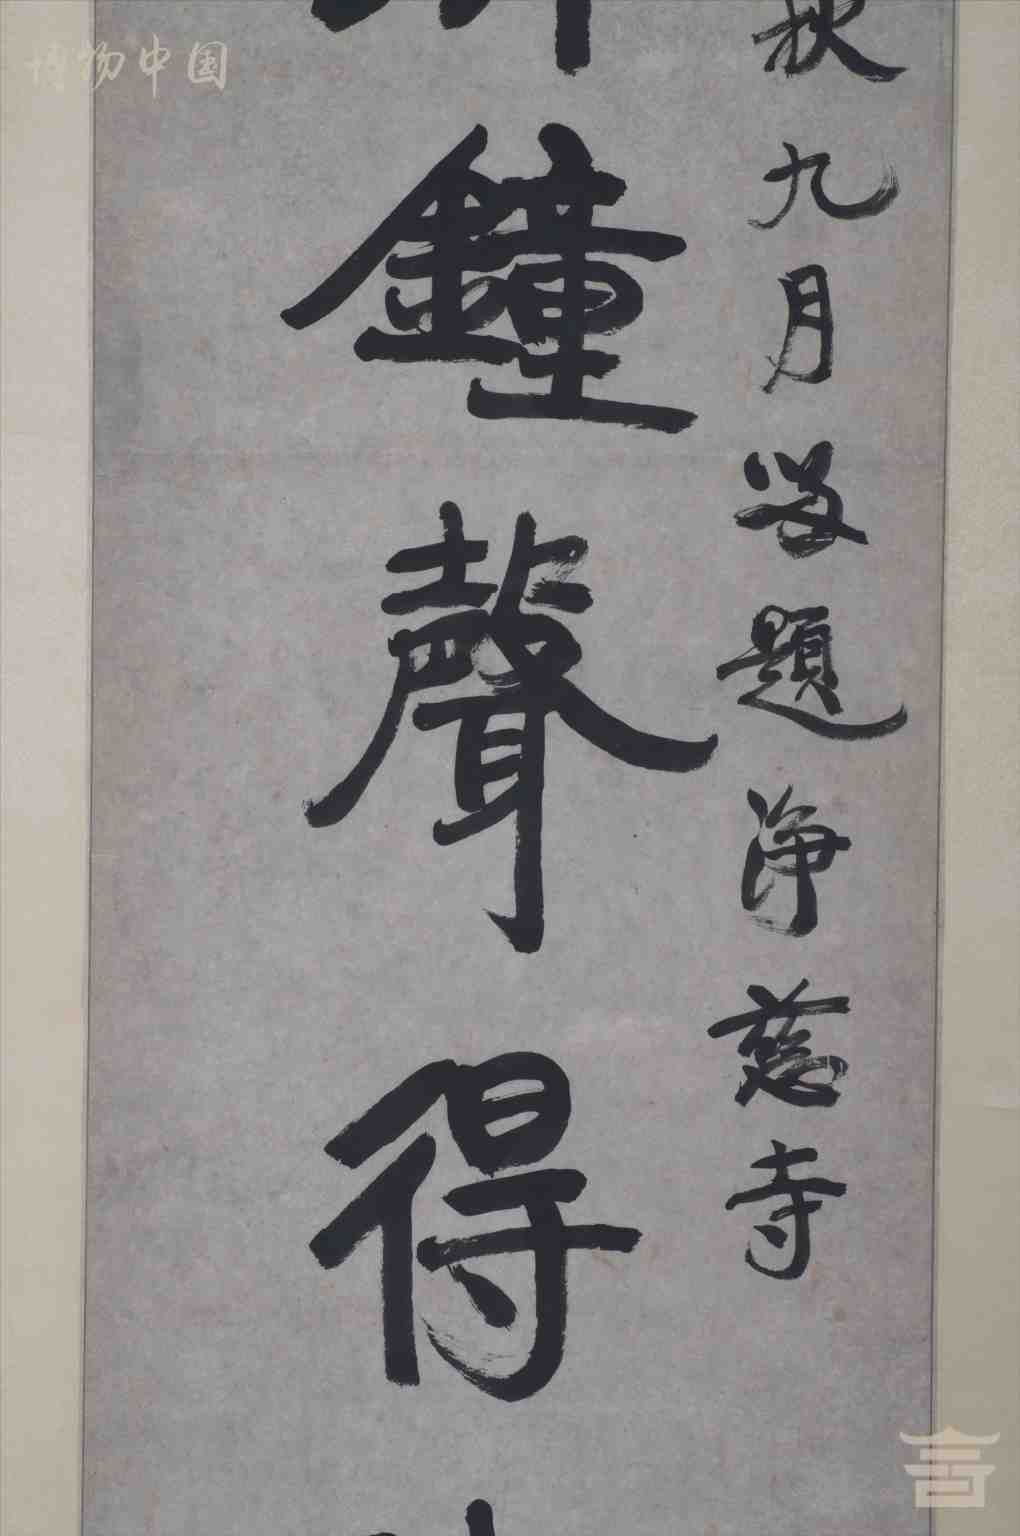 秋九月敬題淨慈寺
鐘聲得
博物中国